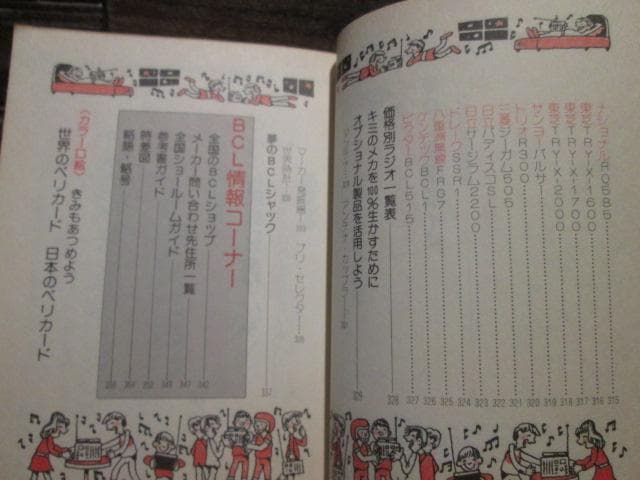 ナショナルRO5B5 315
東芝TRYX1600 316
東芝TRYX1700 317
東芝TRYX2000 318
サンヨーパルサー 319
トリオR300 320
三菱ジーガム505 321
日立パディスコSL 322
日立サージラム2200 323
ドレークSSR1 324
八重洲無線FRG7 325
マンテックBCL1 325
ビクターBCL515 327
価格別ラジオ一覧表 328
キミのメカを100%生かすために
オプショナル製品を活用しよう 329
マーカー発振器 プリ・セレクター
世界時計
夢のBCLシャック 337
BCL情報コーナー
全国のBCLショップ 342
メーカー問い合わせ先住所一覧 347
全国ショールームガイド 349
参考書ガイド 352
時差図 354
略語・略号 358
〈カラー口絵〉 きみもあつめよう
世界のベリカード 日本のベリカード